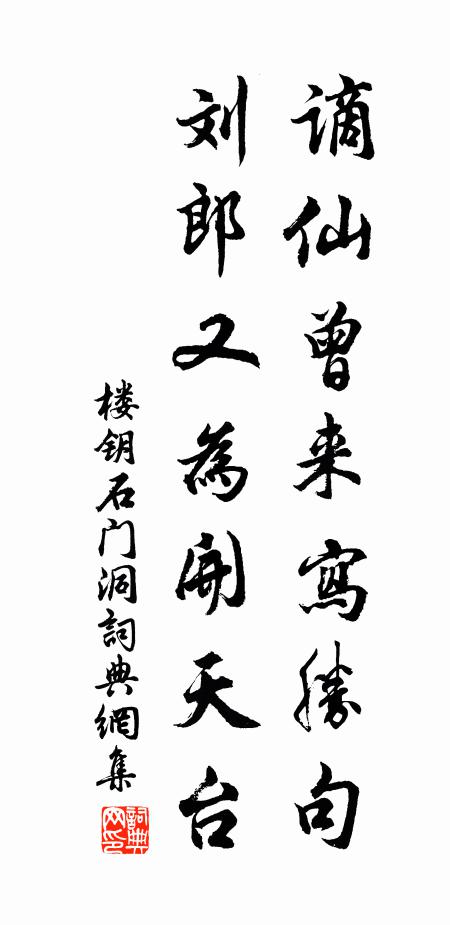 谪仙曾来寫勝句
刘郎又為開天台
楼钥石门洞詞典網集
詞典网印